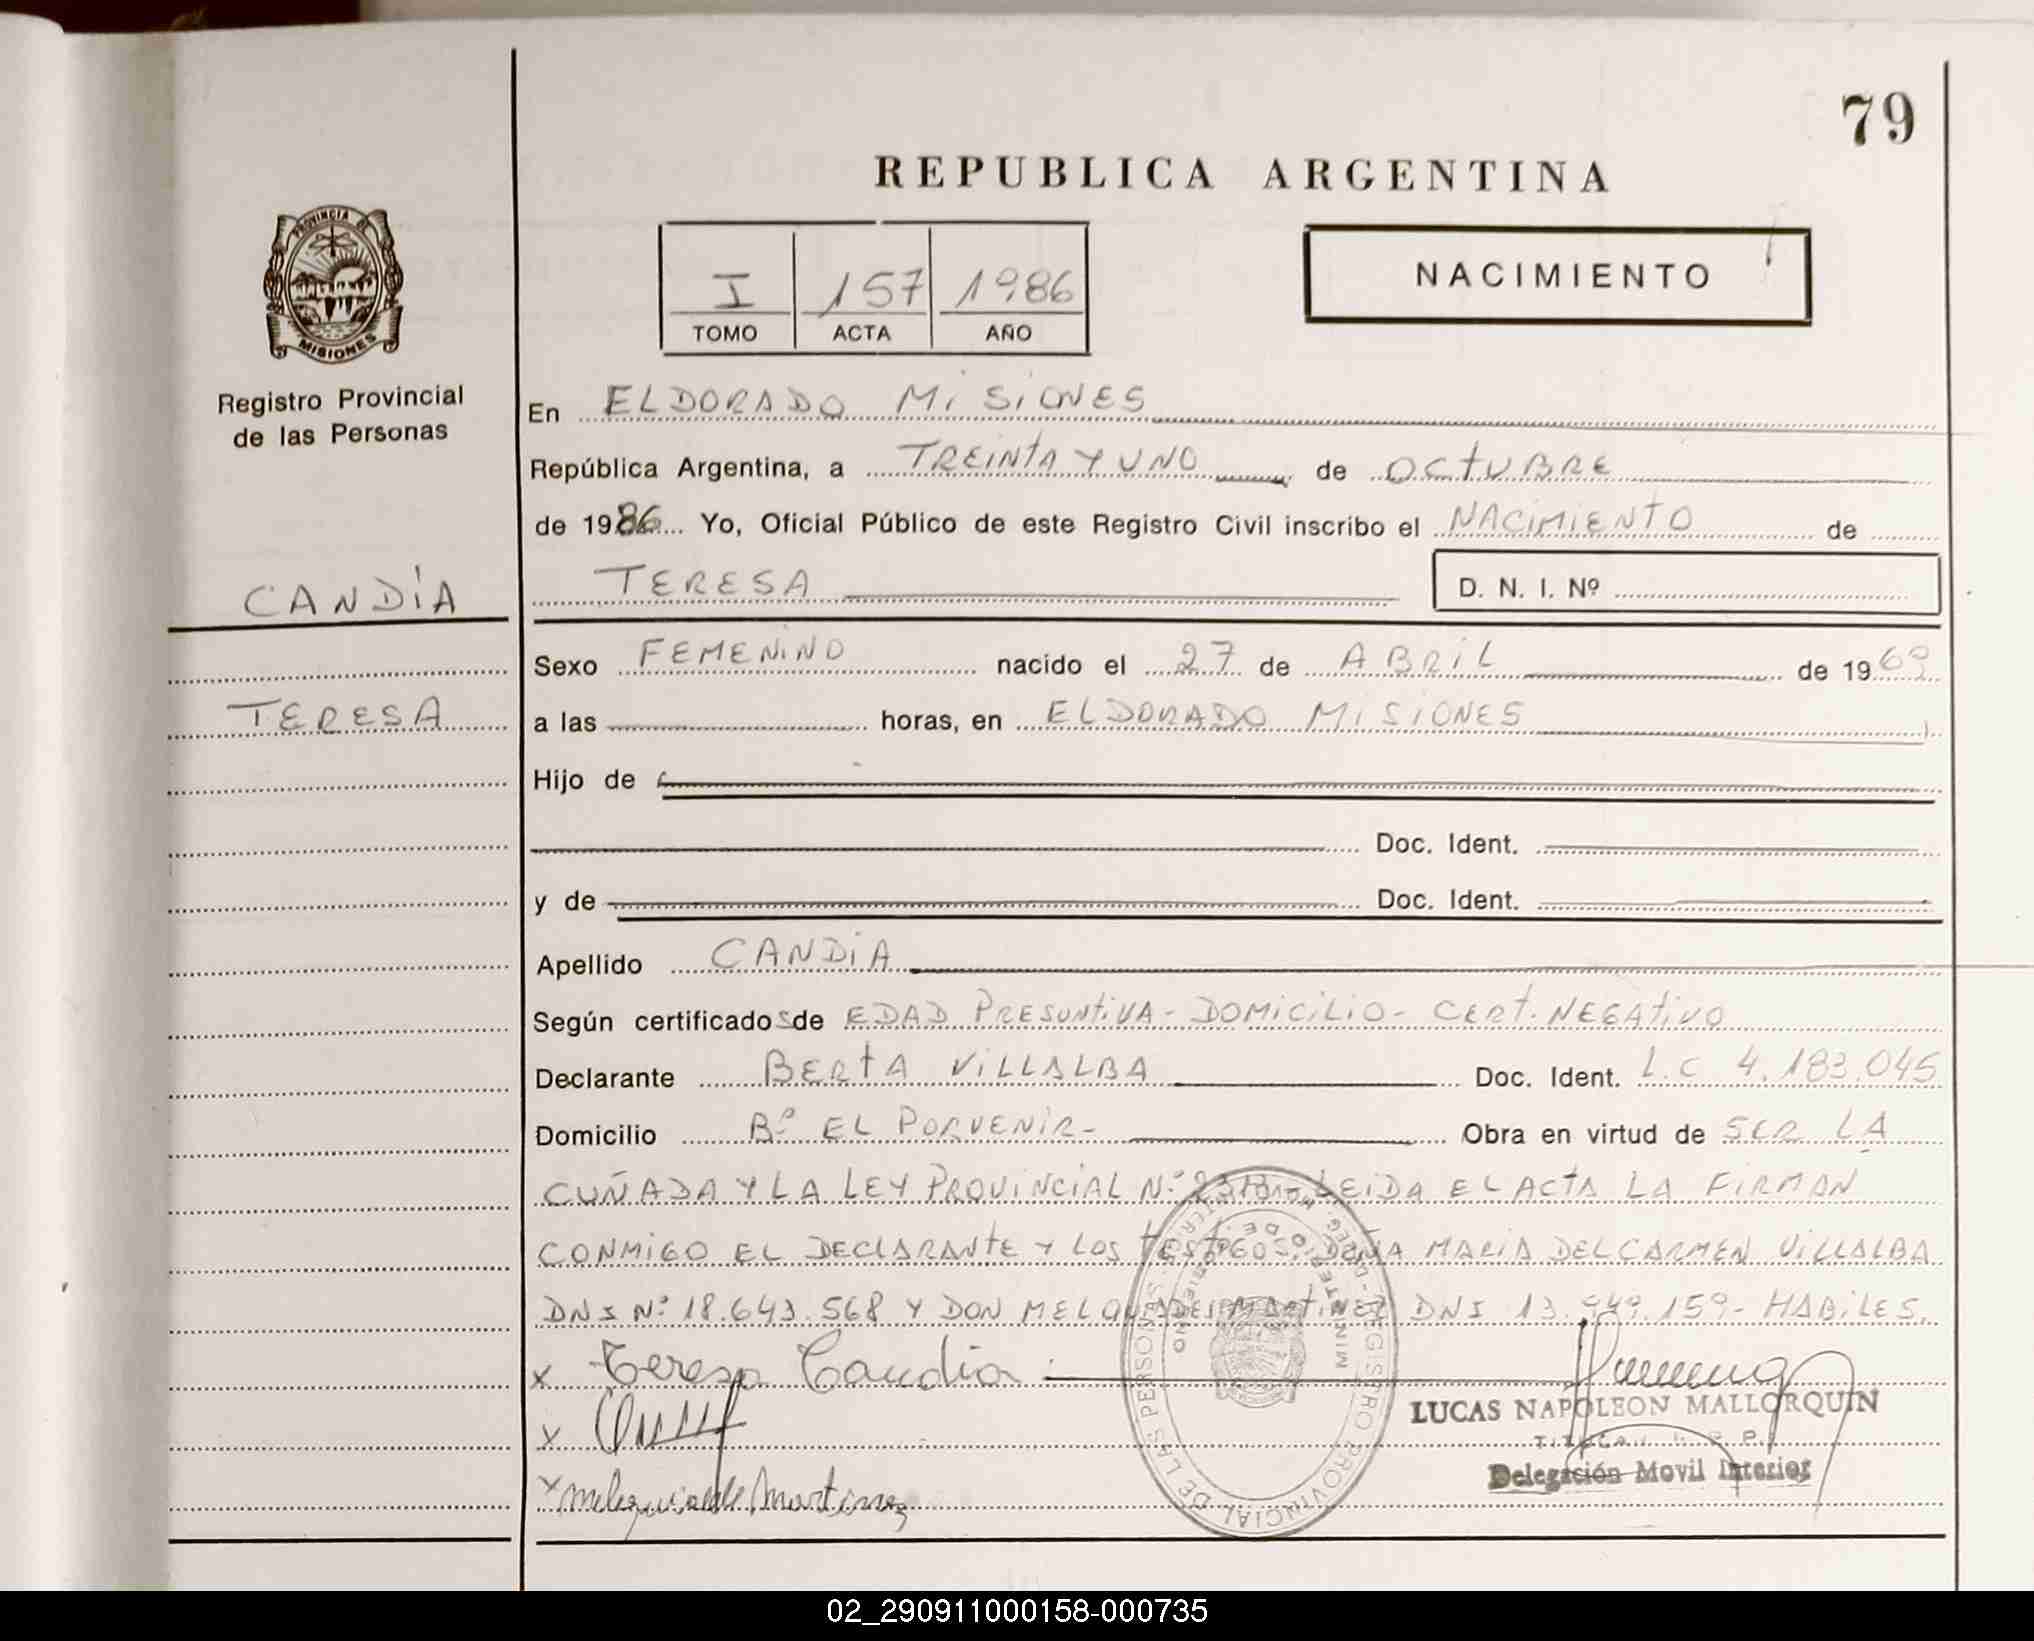 79
REPUBLICA ARGENTINA
PROVINCIA DE
MISIONES
Registro Provincial
de las Personas
I 157 1986
TOMO ACTA AÑO
NACIMIENTO
En ELDORADO MiSiONES
República Argentina, a TREINTA Y UNO de OCTUBRE
de 1986 Yo, Oficial Público de este Registro Civil inscribo el NACIMIENTO de
TERESA D. N. I. Nº
CANDÍA
TERESA
Sexo FEMENINO nacido el 27 de ABRIL de 1969
a las horas, en ELDORADO MISIONES
Hijo de
Doc. Ident.
y de Doc. Ident.
Apellido CANDIA
Según certificados de EDAD PRESUNTIVA - DOMICILIO - CERT. NEGATIVO
Declarante BERTA VILLALBA Doc. Ident. L.C 4.183.045
Domicilio Bº EL PORVENIR- Obra en virtud de SER LA
CUÑADA Y LA LEY PROVINCIAL Nº LEIDA EL ACTA LA FIRMAN
CONMIGO EL DECLARANTE Y LOS TESTIGOS: DOÑA MARIA DEL CARMEN VILLALBA
DNI Nº 18.643.568 Y DON MELQUIADES MARTINEZ DNI 13.949.159- HABILES.
x Teresa Candia
x
x Melquiade Martinez
LUCAS NAPOLEON MALLORQUIN
TITULAR
Delegación Movil Interior
REGISTRO PROVINCIAL DE LAS PERSONAS
02_290911000158-000735